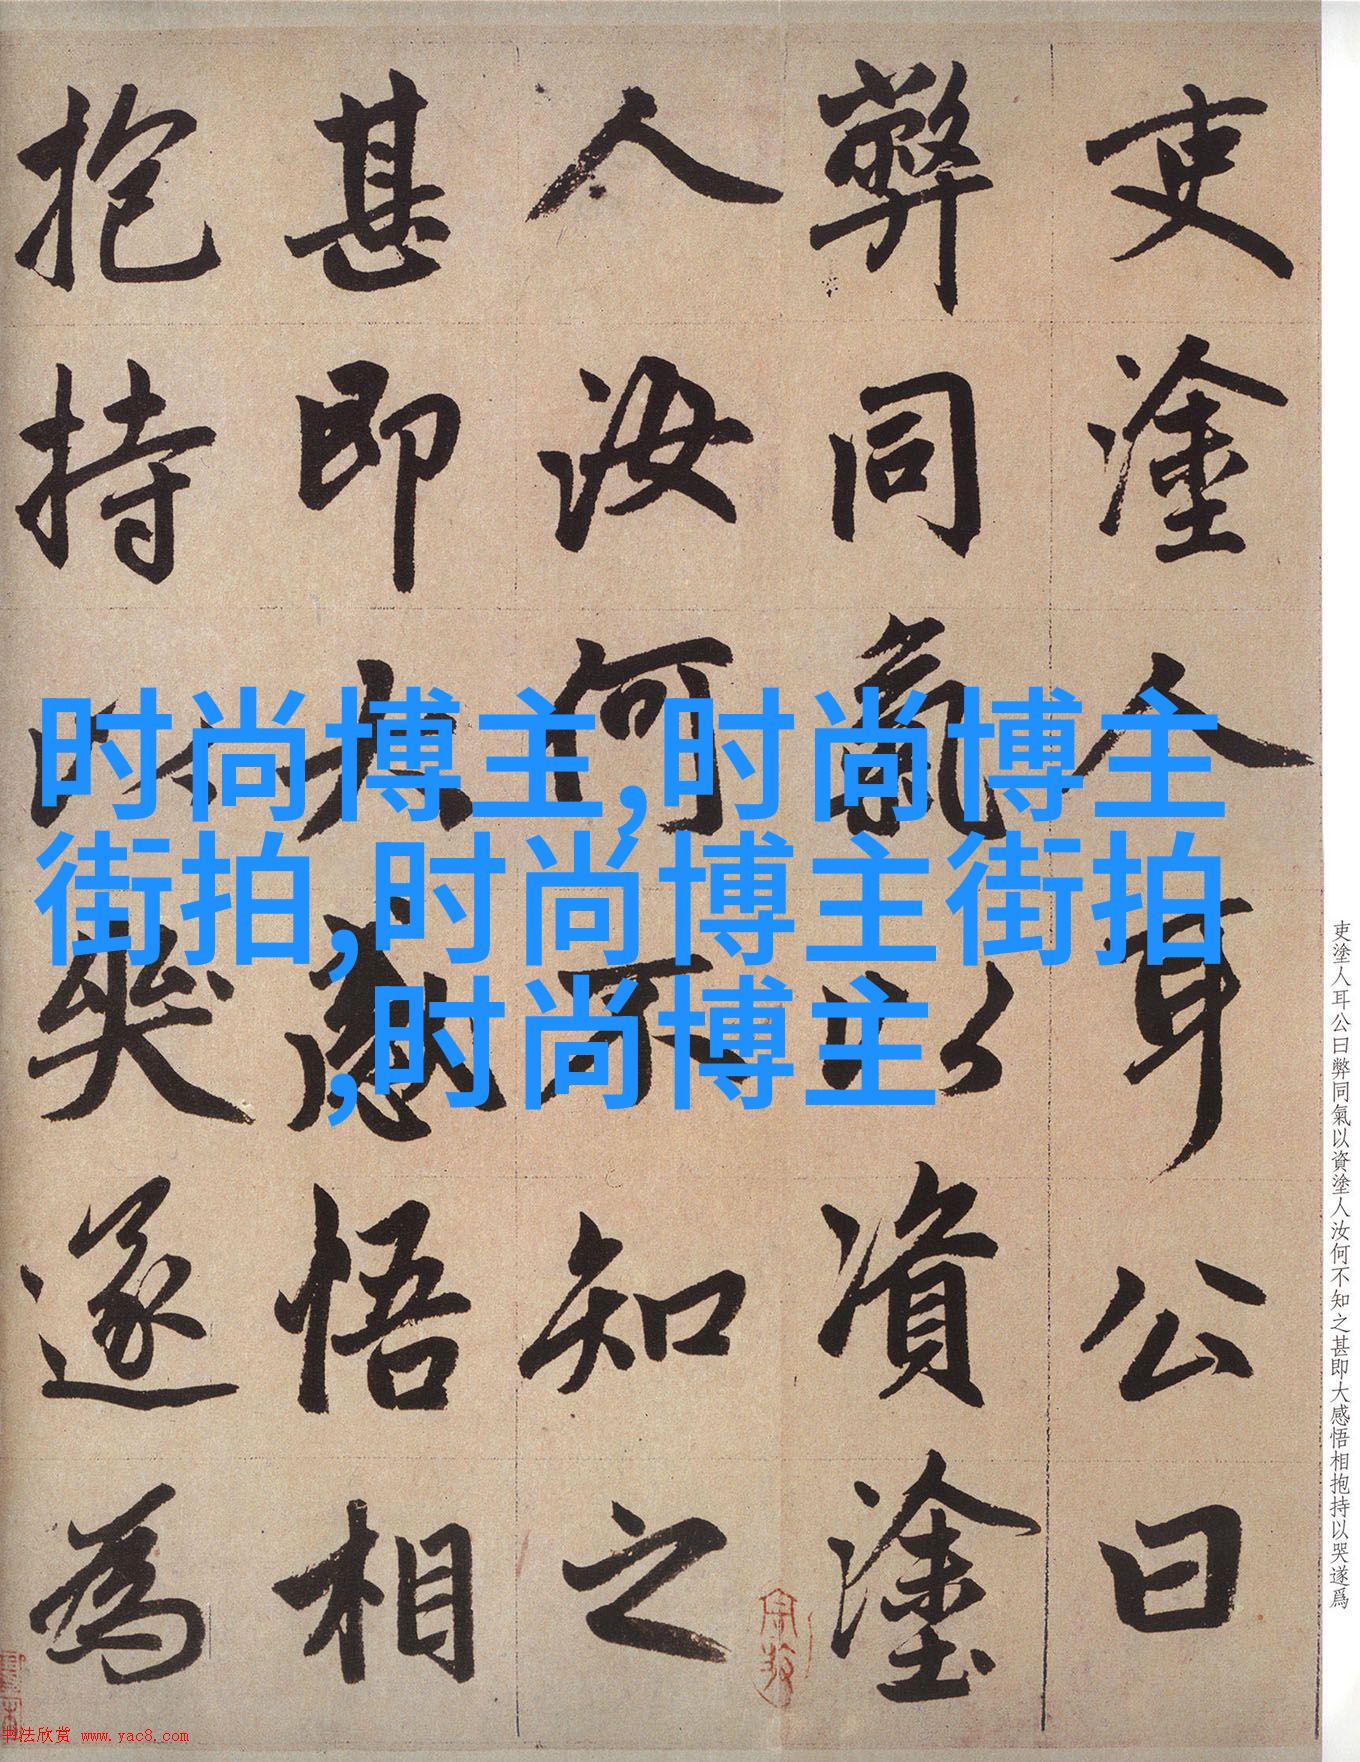 吏塗人耳公曰
弊同氣以資塗
人汝何不知之
甚即大感悟相
抱持以哭遂為
时尚博主,时尚博主
街拍,时尚博主街拍
,时尚博主
吏塗人耳公曰弊同氣以資塗人汝何不知之甚即大感悟相抱持以哭遂爲
书法欣赏 www.yac8.com